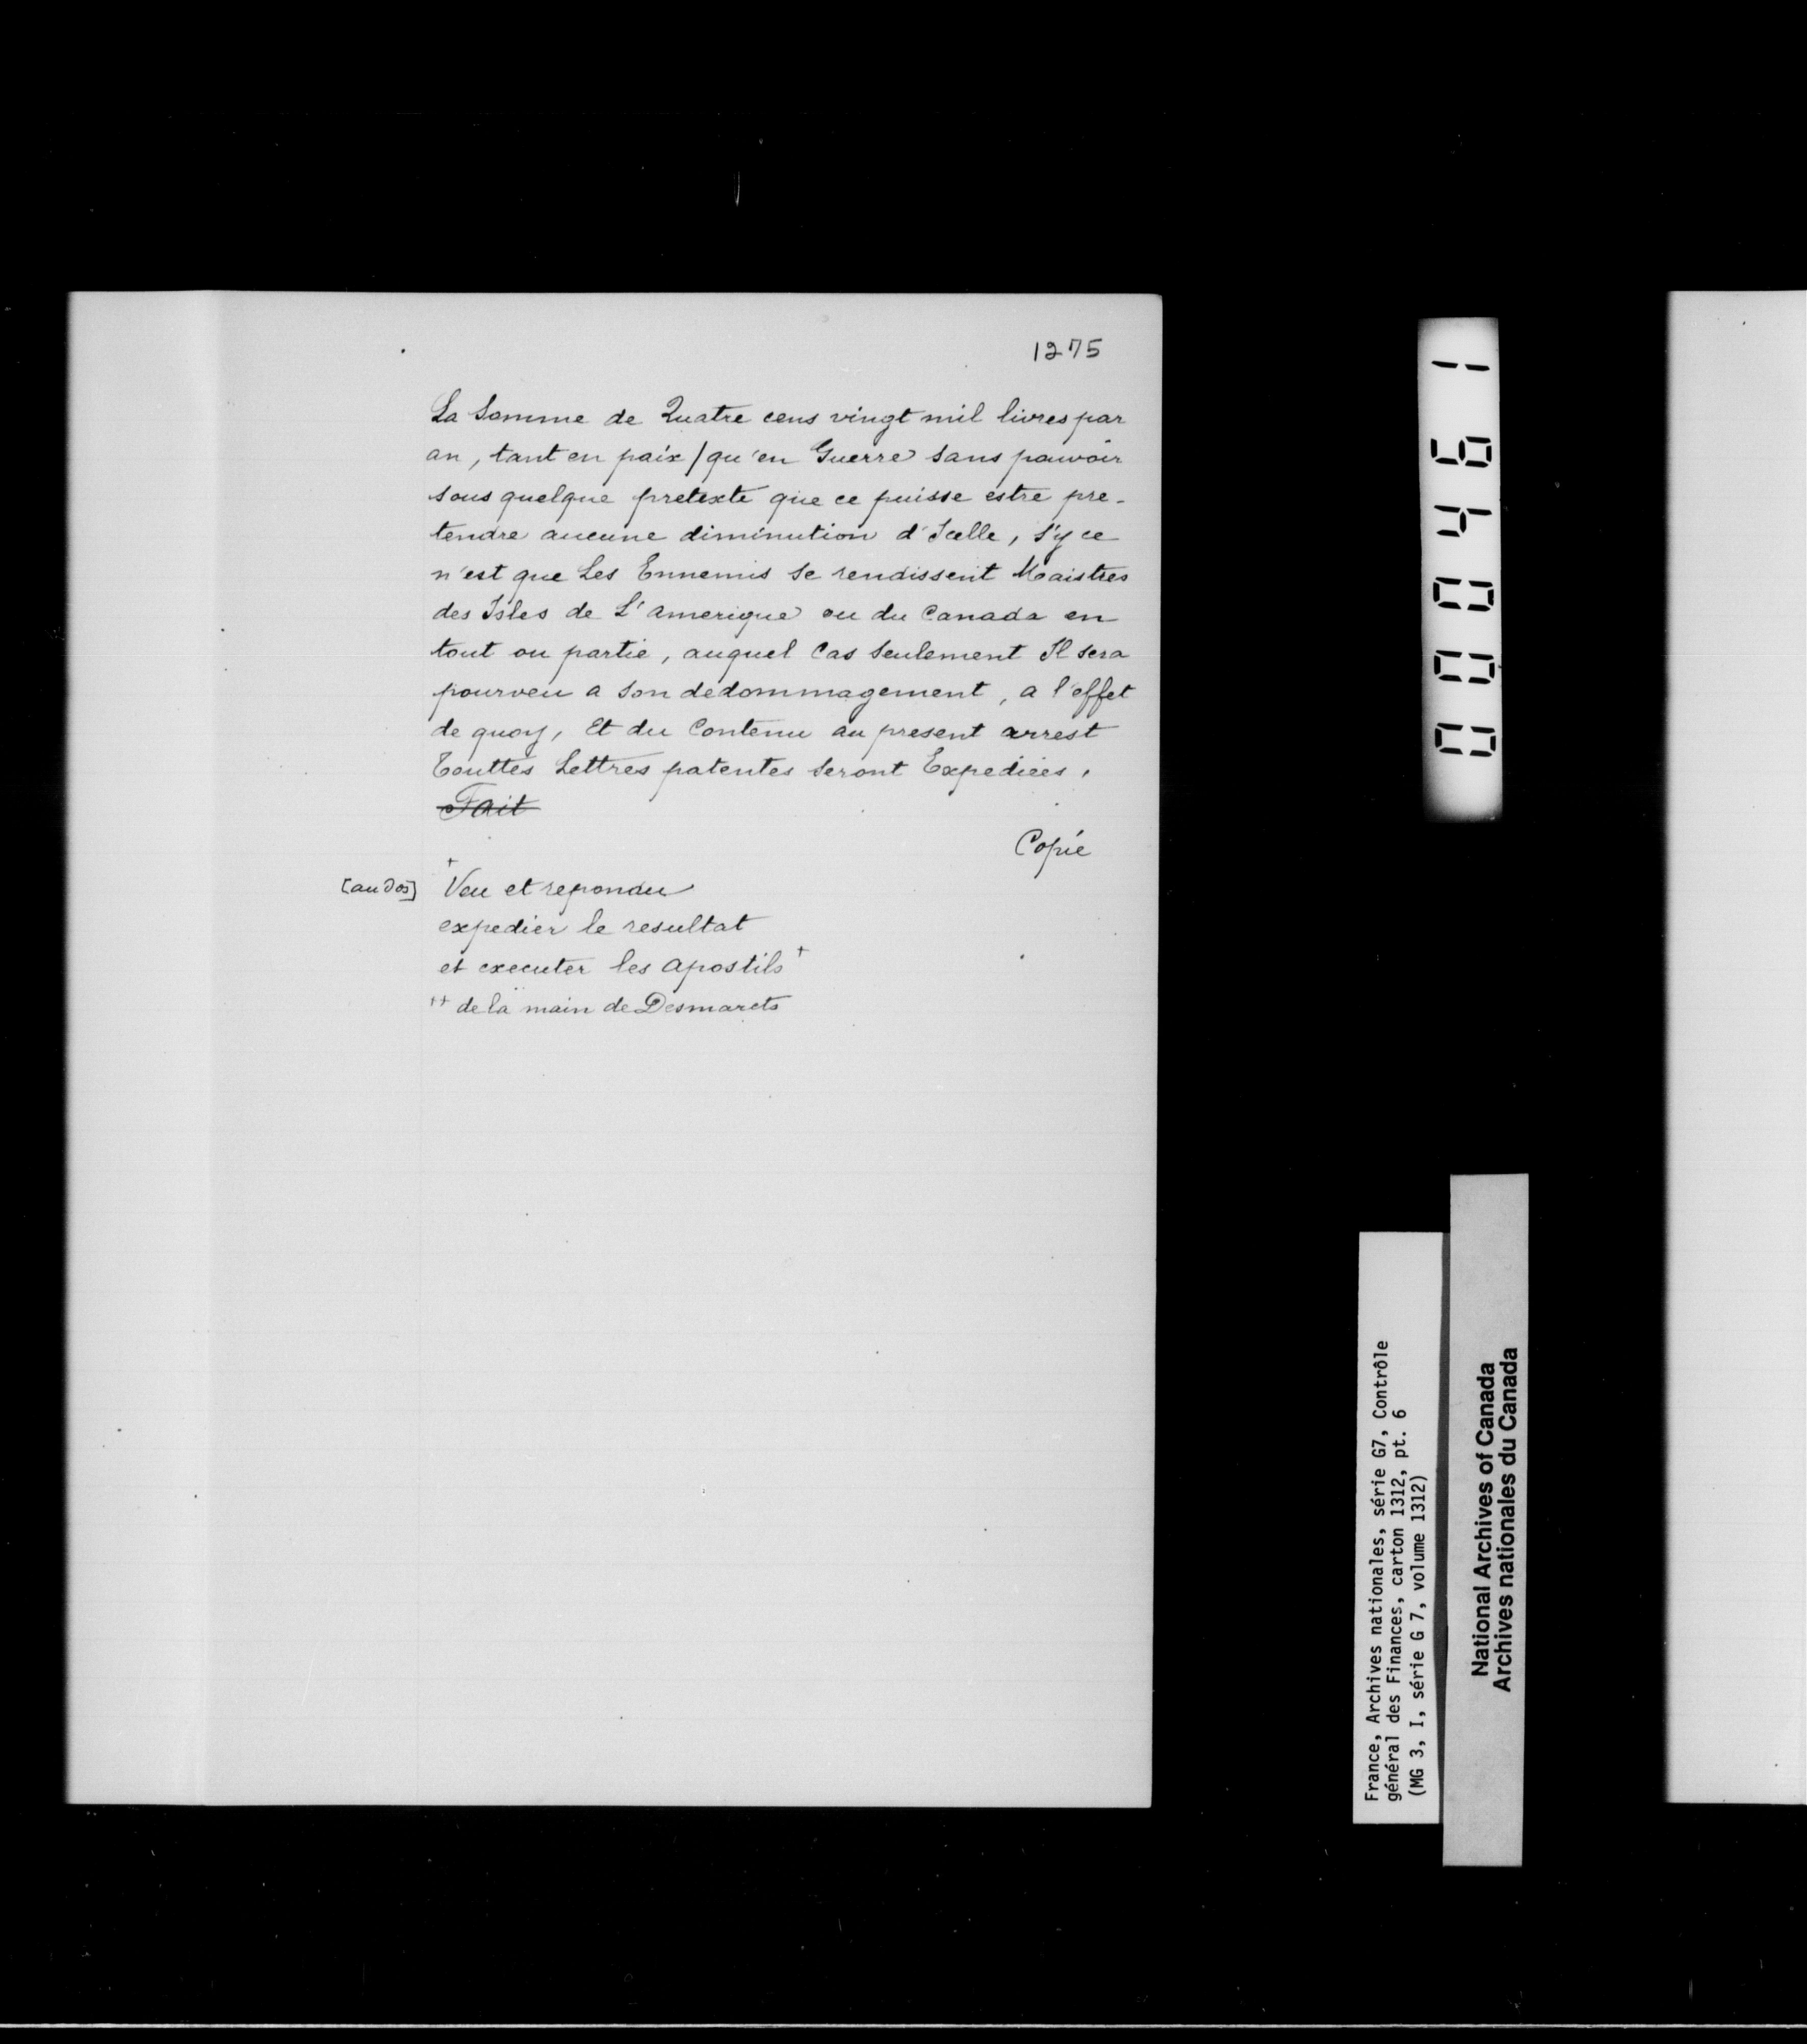 1275
La Somme de Quatre cens vingt mil livres par
an, tant en paix / qu'en Guerre sans pouvoir
sous quelque pretexte que ce puisse estre pre-
tendre aucune diminution d'Icelle, s'y ce
n'est que Les Ennemis se rendissent Maistres
des Isles de L'amerique ou du Canada en
tout ou partie, auquel Cas seulement Il sera
pourveu a son dedommagement, a l'effet
de quoy, Et du Contenu au present arrest
Touttes Lettres patentes seront Expediées,
Fait
Copie
[au dos] + Veu et repondu
expedier le resultat
et executer les apostils +
++ de la main de Desmarets
000461
France, Archives nationales, série G7, Contrôle
général des Finances, carton 1312, pt. 6
(MG 3, I, série G 7, volume 1312)
National Archives of Canada
Archives nationales du Canada